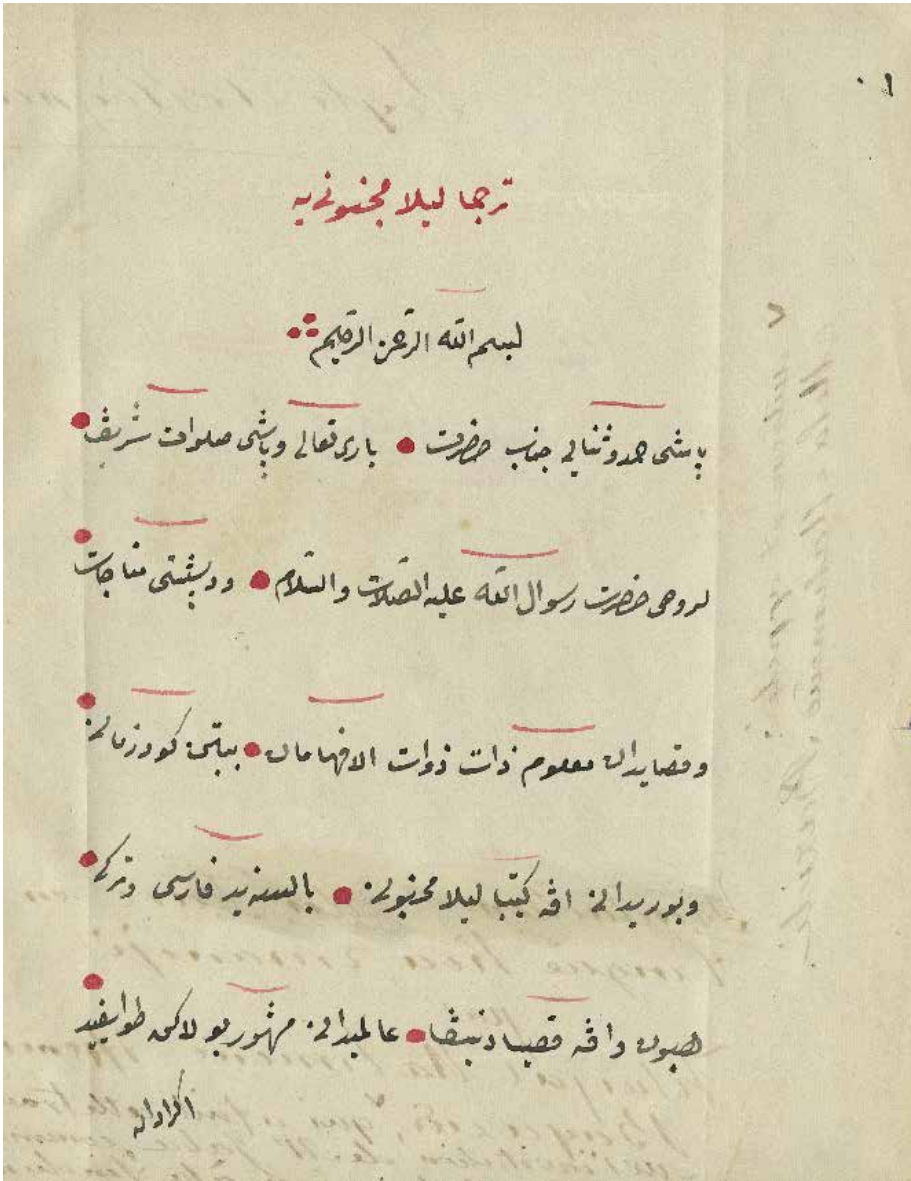 ٠١
ترجما ليلا مجنونی يه
لبسم الله الرحمن الرحيم
پاشی حمد وثنايی جناب حضرت • باری تعالی وپاشی صلوات شريف •
لروحی حضرت رسوال الله عليه الصلات والسلام • ودپشتی مناجات •
وقصايدان معلوم ذات ذوات الافهامان • ببتن كو دزمانی •
وبوريدانی اڤه كيتبا ليلا مجنونی • بالسنه يد فارسی وتركی •
هبون واڤه قصيا دنيڤا • عالميدانی مشهور بو لاكن طوايفيد
اكرادان